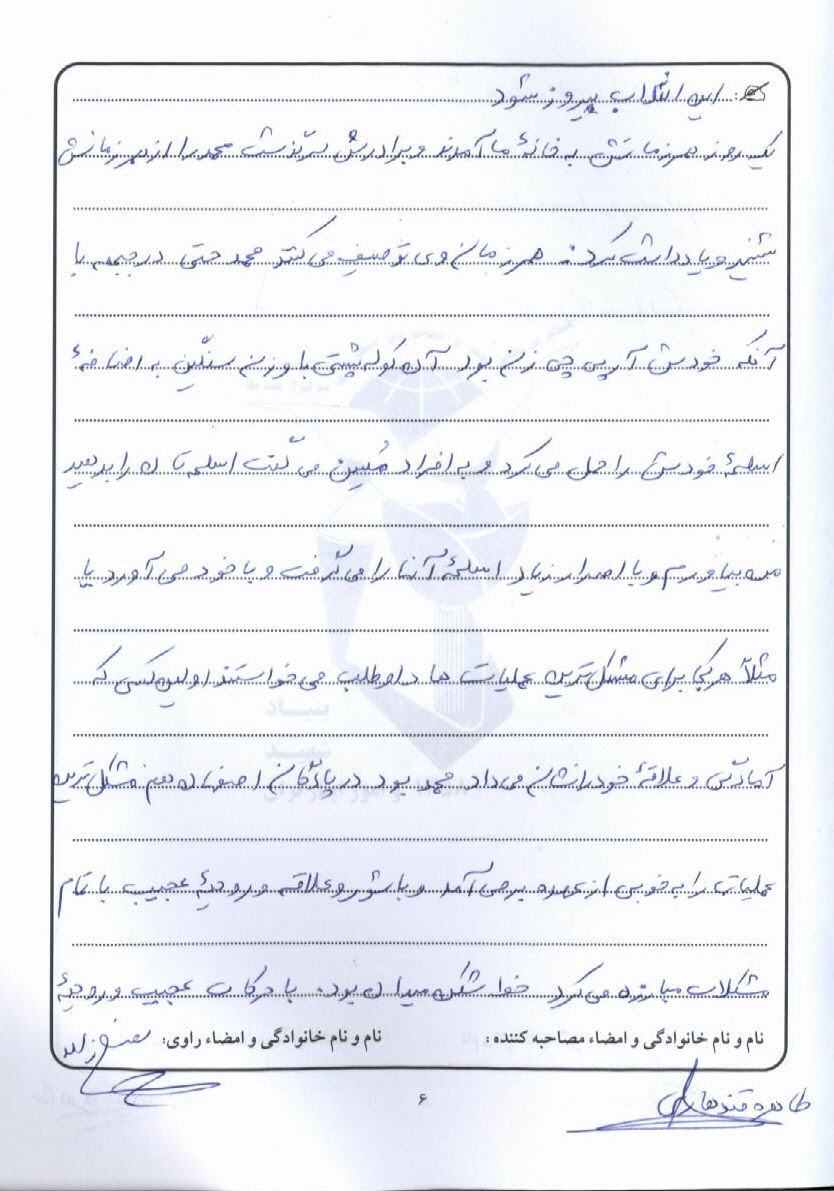 این انقلاب پیروز شود
یک روز همرزمانش به خانهٔ ما آمدند و برادرش سرگذشت محمد را از همرزمانش
شنید و یادداشت کرد. همرزمان وی توصیف می‌کنند محمد حتی در جبهه با
آنکه خودش آرپی‌جی زن بود آن کوله پشتی با وزن سنگین به اضافهٔ
اسلحهٔ خودش را حمل می‌کرد و به افراد مُسِن می‌گفت اسلحه‌تان را بدهید
من بیاورم و با اصرار زیاد اسلحهٔ آنها را می‌گرفت و با خود می‌آورد یا
مثلاً هر کجا برای مشکل‌ترین عملیات‌ها داوطلب می‌خواستند اولین کسی که
آمادگی و علاقهٔ خود را نشان می‌داد محمد بود در پادگان اصفهان هم مشکل‌ترین
عملیات را به خوبی از عهده برمی‌آمد و با شور و علاقه و روحیهٔ عجیب با تمام
مشکلات مبارزه می‌کرد خط شکن میدان بود. با حرکات عجیب و روحیهٔ
نام و نام خانوادگی و امضاء مصاحبه کننده : نام و نام خانوادگی و امضاء راوی:
طاهره قندهاری
۶